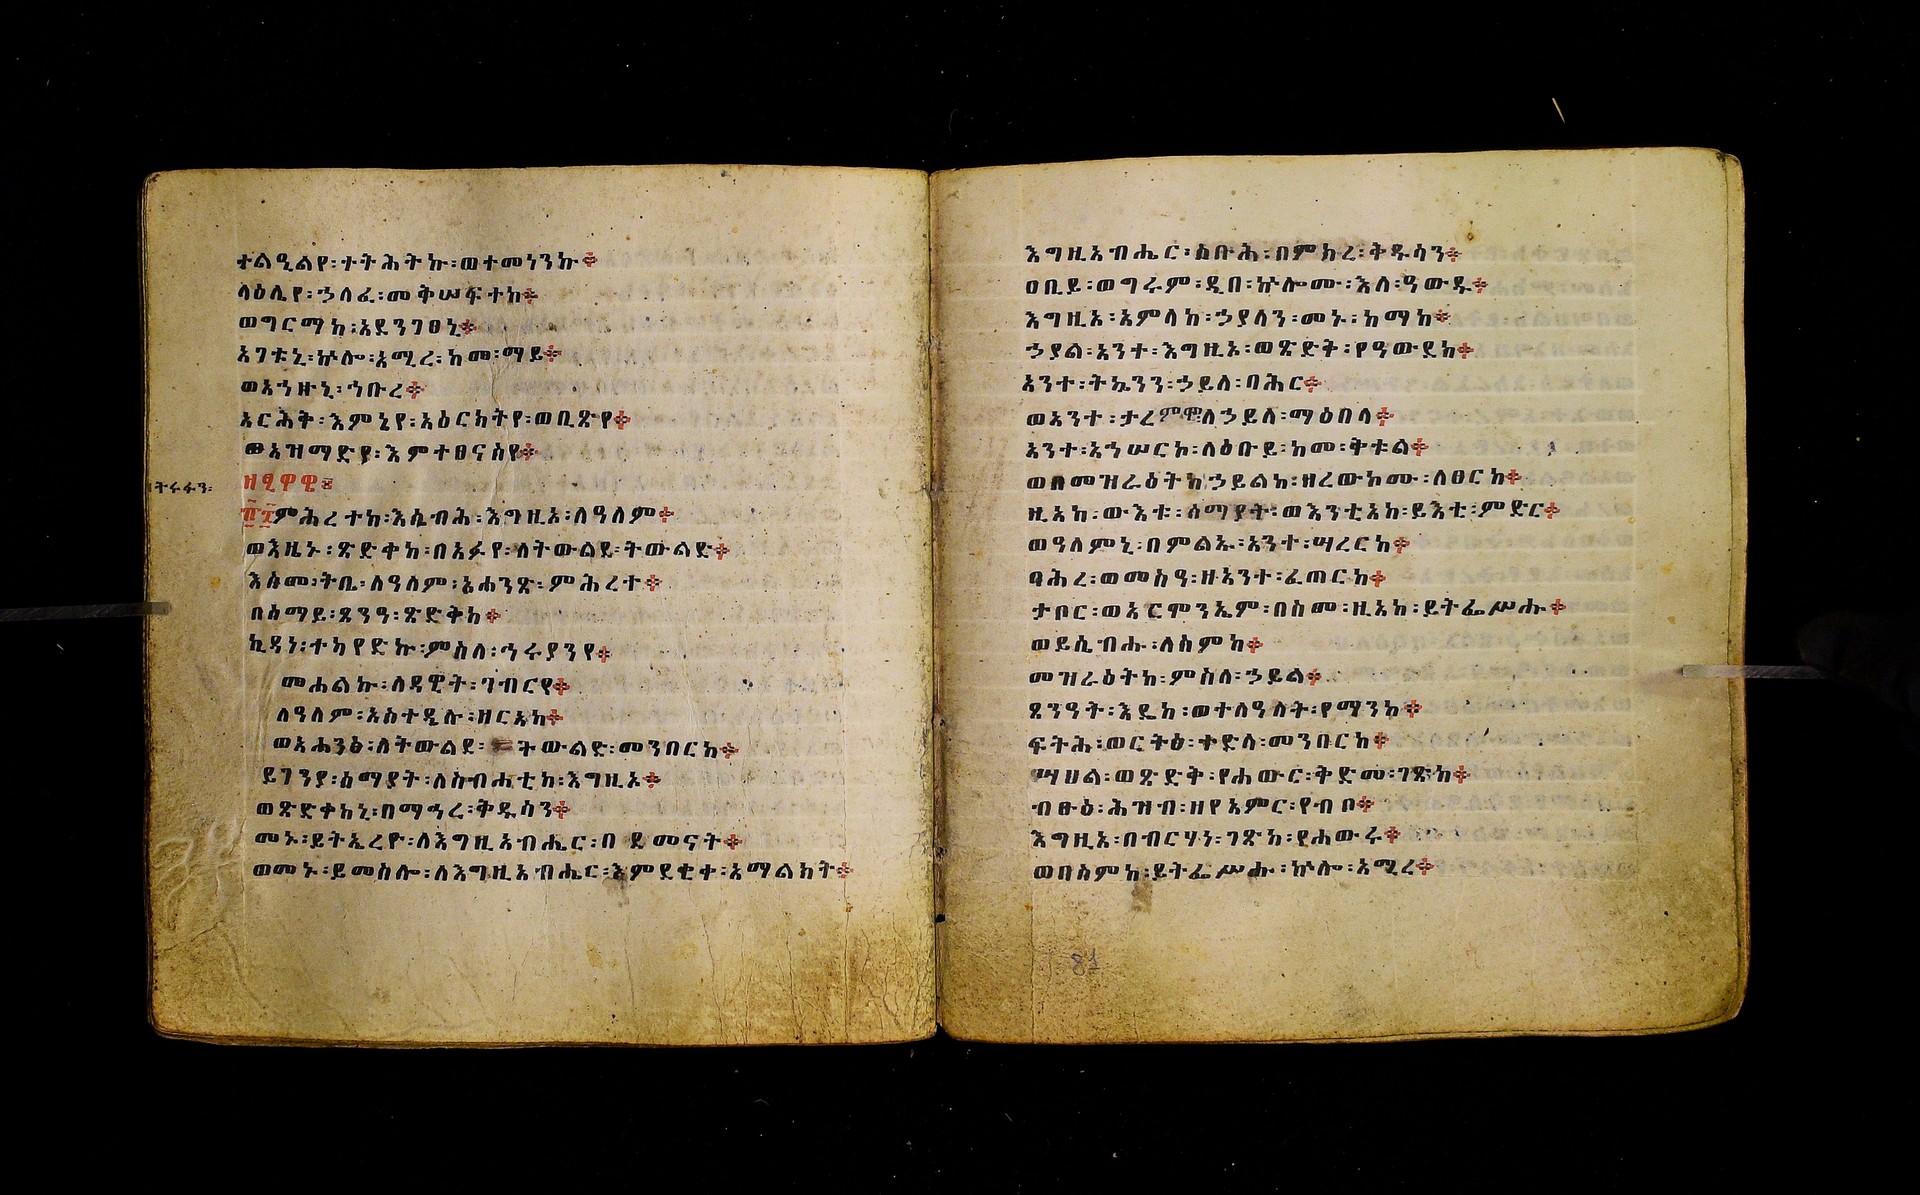 ተልዒልየ፡ተትሕትኩ፡ወተመነንኩ፨
ላዕሌየ፡ኃለፈ፡መቅሠፍተከ፨
ወግርማከ፡አደንገፀኒ፨
አገቱኒ፡ኵሎ፡አሚረ፡ከመ፡ማይ፨
ወአኀዙኒ፡ኅቡረ፨
አርሕቅ፡እምኔየ፡አዕርክትየ፡ወቢጽየ፨
ወአዝማድየ፡እምተፀናስየ፨
ዘትሩፋን፡
ዘዒዋዊ፨
፹፰ምሕረተከ፡እሴብሕ፡እግዚአ፡ለዓለም፨
ወእዜኑ፡ጽድቀከ፡በአፉየ፡ለትውልደ፡ትውልድ፨
እስመ፡ትቤ፡ለዓለም፡አሐንጽ፡ምሕረተ፨
በሰማይ፡ጸንዓ፡ጽድቅከ፨
ኪዳነ፡ተካየድኩ፡ምስለ፡ኅሩያንየ፨
መሐልኩ፡ለዳዊት፡ገብርየ፨
ለዓለም፡አስተዴሉ፡ዘርአከ፨
ወአሐንፅ፡ለትውልደ፡ትውልድ፡መንበርከ፨
ይገንያ፡ሰማያት፡ለስብሐቲከ፡እግዚኦ፨
ወጽድቀከኒ፡በማኅረ፡ቅዱሳን፨
መኑ፡ይትኤረዮ፡ለእግዚአብሔር፡በደመናት፨
ወመኑ፡ይመስሎ፡ለእግዚአብሔር፡እምደቂቀ፡አማልክት፨
እግዚአብሔር፡ስቡሕ፡በምክረ፡ቅዱሳን፨
ዐቢይ፡ወግሩም፡ዲበ፡ኵሎሙ፡እለ፡ዓውዱ፨
እግዚአ፡አምላከ፡ኃያላን፡መኑ፡ከማከ፨
ኃያል፡አንተ፡እግዚኦ፡ወጽድቅ፡የዓውደከ፨
አንተ፡ትኴንን፡ኃይለ፡ባሕር፨
ወአንተ፡ታረምሞ፡ለኃይለ፡ማዕበላ፨
አንተ፡አኅሠርኮ፡ለዕቡይ፡ከመ፡ቅቱል፨
ወበመዝራዕትከ፡ኃይልከ፡ዘረውኮሙ፡ለፀርከ፨
ዚአከ፡ውእቱ፡ሰማያት፡ወእንቲአከ፡ይእቲ፡ምድር፨
ወዓለምኒ፡በምልኡ፡አንተ፡ሣረርከ፨
ባሕረ፡ወመስዓ፡ዘአንተ፡ፈጠርከ፨
ታቦር፡ወአርሞንኤም፡በስመ፡ዚአከ፡ይትፌሥሑ፨
ወይሴብሑ፡ለስምከ፨
መዝራዕትከ፡ምስለ፡ኃይል፨
ጸንዓት፡እዴከ፡ወተለዓለት፡የማንከ፨
ፍትሕ፡ወርትዕ፡ተድላ፡መንበርከ፨
ሣህል፡ወጽድቅ፡የሐውር፡ቅድመ፡ገጽከ፨
ብፁዕ፡ሕዝብ፡ዘየአምር፡የብቦ፨
እግዚአ፡በብርሃነ፡ገጽከ፡የሐውሩ፨
ወበስምከ፡ይትፌሥሑ፡ኵሎ፡አሚረ፨
81